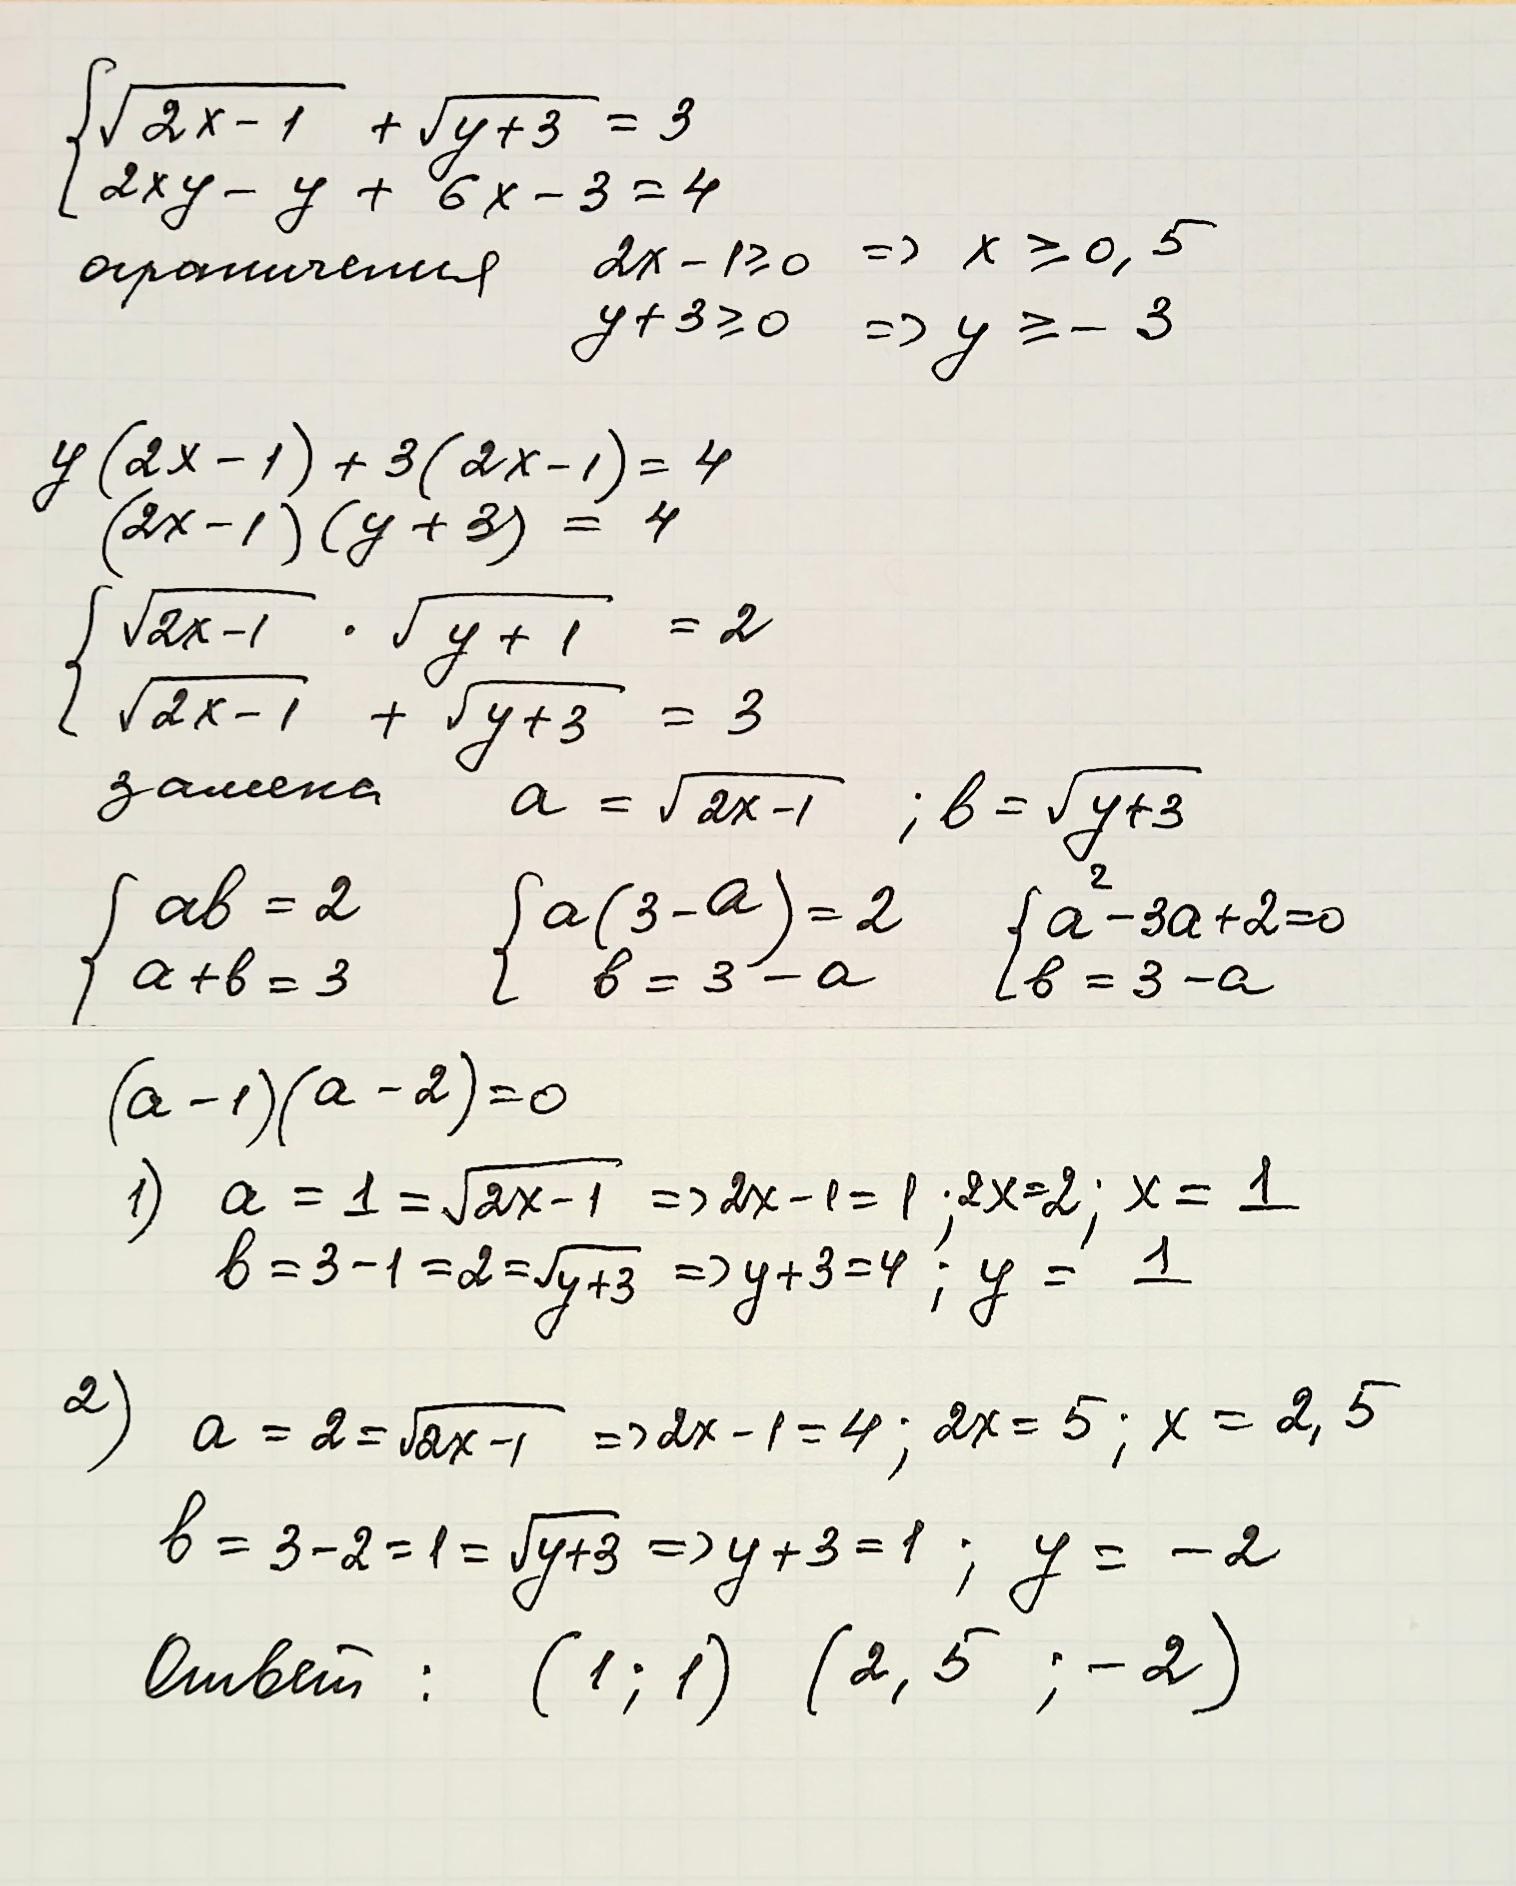 { √(2x-1) + √(y+3) = 3
2xy - y + 6x - 3 = 4
ограничения 2x-1≥0 => x ≥ 0,5
y+3≥0 => y ≥ -3
y(2x-1)+3(2x-1)=4
(2x-1)(y+3) = 4
{ √(2x-1) · √(y+1) = 2
√(2x-1) + √(y+3) = 3
замена a = √(2x-1) ; в = √(y+3)
{ aв = 2 { a(3-a) = 2 { a²-3a+2=0
a+в = 3 в = 3-a в = 3-a
(a-1)(a-2)=0
1) a = 1 = √(2x-1) => 2x-1=1 ; 2x=2; x = 1
в = 3-1 = 2 = √(y+3) => y+3=4 ; y = 1
2) a = 2 = √(2x-1) => 2x-1=4; 2x=5; x = 2,5
в = 3-2=1= √(y+3) => y+3=1 ; y = -2
Ответ : (1; 1) (2,5 ; -2)